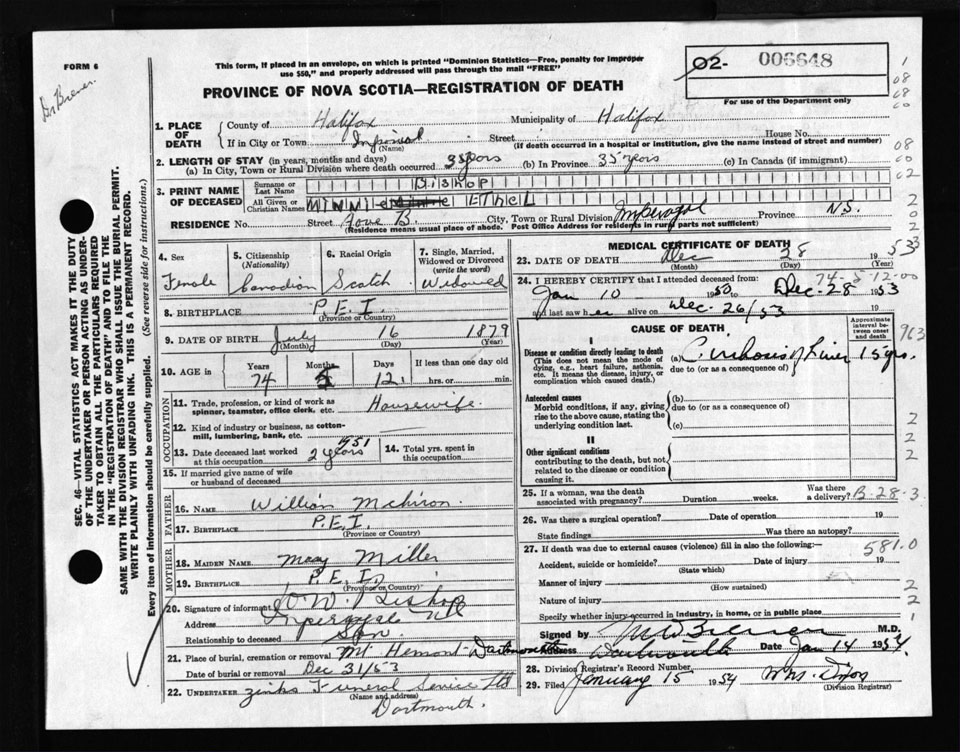 FORM 6
This form, if placed in an envelope, on which is printed "Dominion Statistics—Free, penalty for improper
use $50," and properly addressed will pass through the mail "FREE"
PROVINCE OF NOVA SCOTIA—REGISTRATION OF DEATH
02- 006648
For use of the Department only
SEC. 46—VITAL STATISTICS ACT MAKES IT THE DUTY
OF THE UNDERTAKER OR PERSON ACTING AS UNDER-
TAKER TO OBTAIN ALL THE PARTICULARS REQUIRED
IN THE "REGISTRATION OF DEATH" AND TO FILE THE
SAME WITH THE DIVISION REGISTRAR WHO SHALL ISSUE THE BURIAL PERMIT.
WRITE PLAINLY WITH UNFADING INK. THIS IS A PERMANENT RECORD.
Every item of information should be carefully supplied. (See reverse side for instructions.)
1. PLACE OF DEATH County of Halifax Municipality of Halifax
If in City or Town Imperoyal Street House No.
(Name) (If death occurred in a hospital or institution, give the name instead of street and number)
2. LENGTH OF STAY (in years, months and days)
(a) In City, Town or Rural Division where death occurred 35 years (b) In Province 35 years (c) In Canada (if immigrant)
3. PRINT NAME OF DECEASED Surname or Last Name BISHOP
All Given or Christian Names MINNIE ETHEL
RESIDENCE No. Street City, Town or Rural Division Imperoyal Province N.S.
(Residence means usual place of abode. Post Office Address for residents in rural parts not sufficient)
4. Sex Female
5. Citizenship (Nationality) Canadian
6. Racial Origin Scotch
7. Single, Married, Widowed or Divorced (write the word) Widowed
8. BIRTHPLACE P.E.I.
(Province or Country)
9. DATE OF BIRTH July 16 1879
(Month) (Day) (Year)
10. AGE in Years 74 Months 5 Days 12 If less than one day old hrs. or min.
OCCUPATION
11. Trade, profession, or kind of work as spinner, teamster, office clerk, etc. Housewife
12. Kind of industry or business, as cotton-mill, lumbering, bank, etc.
13. Date deceased last worked at this occupation 2 years 1951
14. Total yrs. spent in this occupation
15. If married give name of wife or husband of deceased
FATHER
16. NAME William
17. BIRTHPLACE P.E.I.
(Province or Country)
MOTHER
18. MAIDEN NAME Mary Miller
19. BIRTHPLACE P.E.I.
(Province or Country)
20. Signature of informant O.W. Bishop
Address Imperoyal N.S.
Relationship to deceased Son
21. Place of burial, cremation or removal Mt Hermont - Dartmouth
Date of burial or removal Dec 31/53
22. UNDERTAKER Zinks Funeral Service Ltd
(Name and address)
Dartmouth.
MEDICAL CERTIFICATE OF DEATH
23. DATE OF DEATH Dec 28 1953
(Month) (Day)
74-5-12-00
24. I HEREBY CERTIFY that I attended deceased from:
Jan 10 1950 to Dec. 28 1953
and last saw her alive on Dec. 26/53 19
CAUSE OF DEATH
Approximate interval between onset and death
I
Disease or condition directly leading to death (a) Cirrhosis of Liver 15 yrs.
(This does not mean the mode of dying, e.g., heart failure, asthenia, etc. It means the disease, injury, or complication which caused death.) due to (or as a consequence of)
Antecedent causes (b)
Morbid conditions, if any, giving rise to the above cause, stating the underlying condition last. due to (or as a consequence of)
(c)
II
Other significant conditions
contributing to the death, but not related to the disease or condition causing it.
25. If a woman, was the death associated with pregnancy? Duration weeks. Was there a delivery? B-28-3
26. Was there a surgical operation? Date of operation 19
State findings Was there an autopsy?
27. If death was due to external causes (violence) fill in also the following:— 581.0
Accident, suicide or homicide? Date of injury 19
(State which)
Manner of injury
(How sustained)
Nature of injury
Specify whether injury occurred in industry, in home, or in public place
Signed by M.D.
Address Dartmouth Date Jan 14 1954
28. Division Registrar's Record Number
29. Filed January 15 1954 Mrs. Dixon
(Division Registrar)